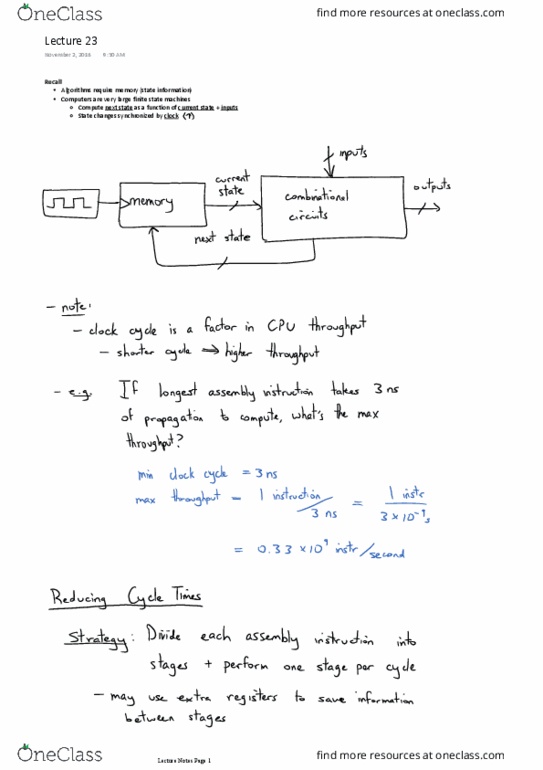 OneClass
find more resources at oneclass.com
Lecture 23
November 2, 2018 9:30 AM
Recall
• Algorithms require memory (state information)
• Computers are very large finite state machines
o Compute next state as a function of current state + inputs
o State changes synchronized by clock (↑)
inputs
current
state
outputs
memory
combinational
circuits
next state
- note:
- clock cycle is a factor in CPU throughput
- shorter cycle → higher throughput
- e.g. If longest assembly instruction takes 3 ns
of propagation to compute, what's the max
throughput?
min clock cycle = 3 ns
max throughput = 1 instruction / 3 ns = 1 instr / 3 × 10⁻⁹ s
= 0.33 × 10⁹ instr/second
Reducing Cycle Times
Strategy: Divide each assembly instruction into
stages + perform one stage per cycle
- may use extra registers to save information
between stages
OneClass
Lecture Notes Page 1
find more resources at oneclass.com